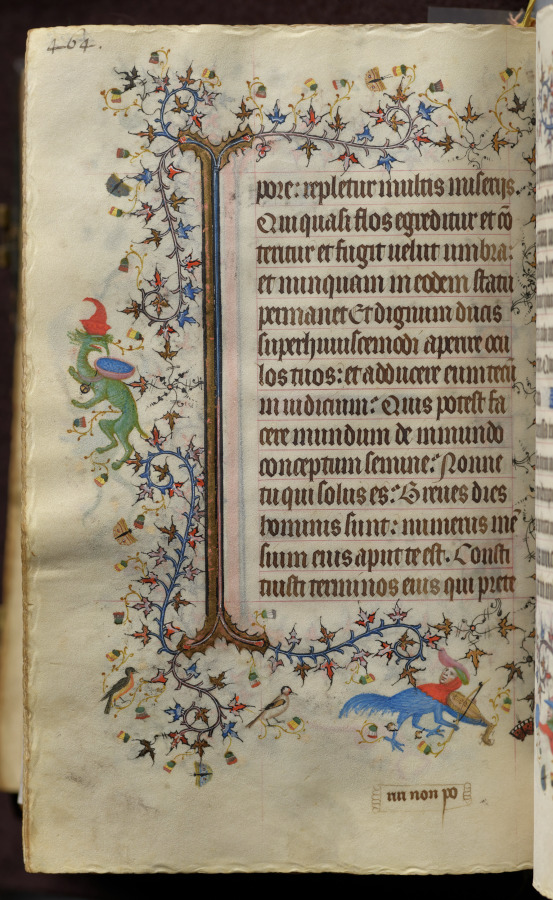 464.
pore: repletur multis miserijs.
Qui quasi flos egreditur et cō
teritur et fugit uelut umbra:
et nunquam in eodem statu
permanet Et dignum ducis
super huiuscemodi aperire ocu
los tuos: et adducere eum tecū
in iudicium: Quis potest fa
cere mundum de inmundo
conceptum semine: Nonne
tu qui solus es: Breues dies
hominis sunt: numerus mē
sium eius aput te est. Consti
tuisti terminos eius qui prete
riri non po